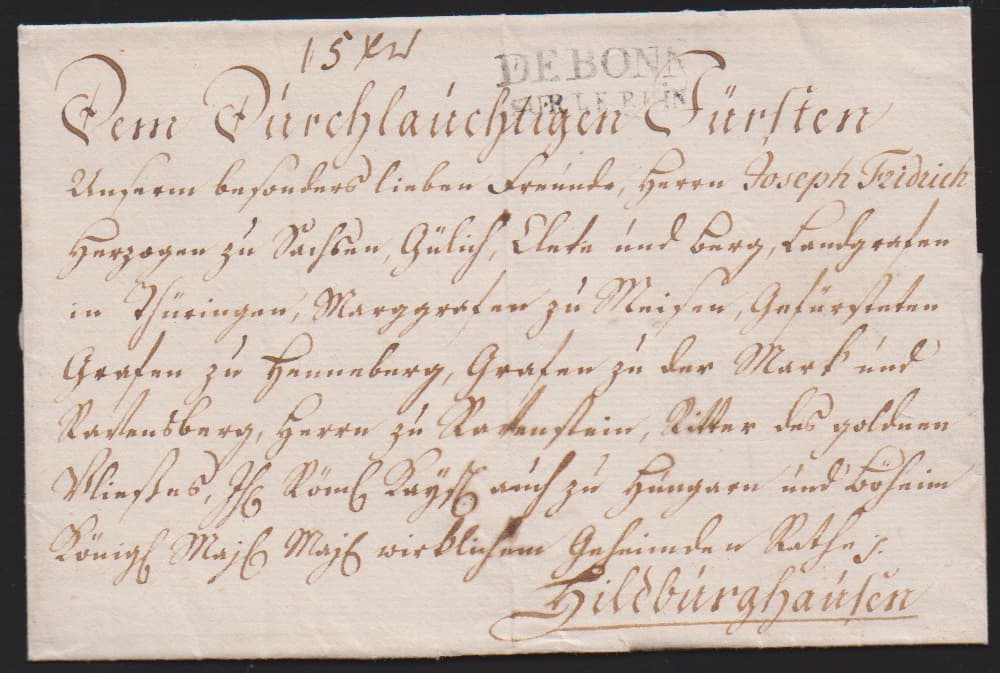 15 xr
DE BONN
SUR LE RHIN
Dem Durchlauchtigen Fürsten
Unserm besonders lieben Freunde, Herrn Joseph Fridrich
Herzogen zu Sachsen, Gülich, Cleve und Berg, Landgrafen
in Thüringen, Marggrafen zu Meisen, Gefürsteten
Grafen zu Henneberg, Grafen zu der Mark und
Ravensberg, Herrn zu Ravenstein, Ritter des goldnen
Vließes, Röml Kaysl auch zu Hungarn und Böheim
Königl Majl Majl wirklichem Geheimden Rathe
Hildburghausen